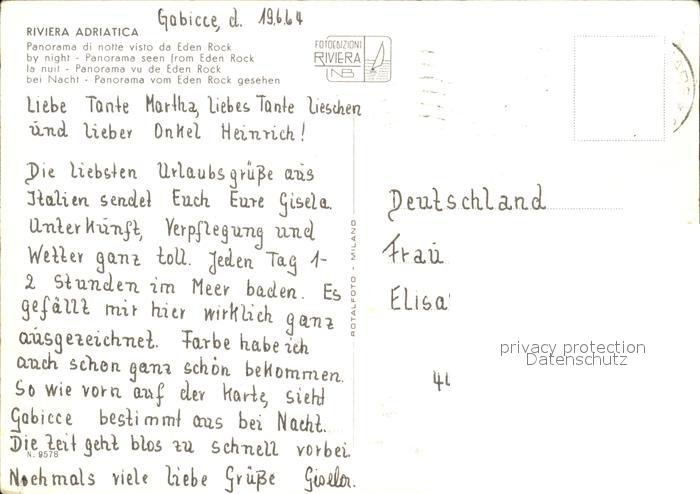 Gabicce, d. 19.6.64
RIVIERA ADRIATICA
Panorama di notte visto da Eden Rock
by night - Panorama seen from Eden Rock
la nuit - Panorama vu de Eden Rock
bei Nacht - Panorama vom Eden Rock gesehen
FOTOEDIZIONI
RIVIERA
LNB
Liebe Tante Martha, liebes Tante Lieschen
und lieber Onkel Heinrich!
Die liebsten Urlaubsgrüße aus
Italien sendet Euch Eure Gisela.
Unterkunft, Verpflegung und
Wetter ganz toll. Jeden Tag 1-
2 Stunden im Meer baden. Es
gefällt mir hier wirklich ganz
ausgezeichnet. Farbe habe ich
auch schon ganz schön bekommen.
So wie vorn auf der Karte, sieht
Gabicce bestimmt aus bei Nacht.
Die Zeit geht blos zu schnell vorbei.
N. 9578
Nochmals viele liebe Grüße Gisela.
ROTALFOTO - MILANO
Deutschland
Frau
Elisa
44
privacy protection
Datenschutz